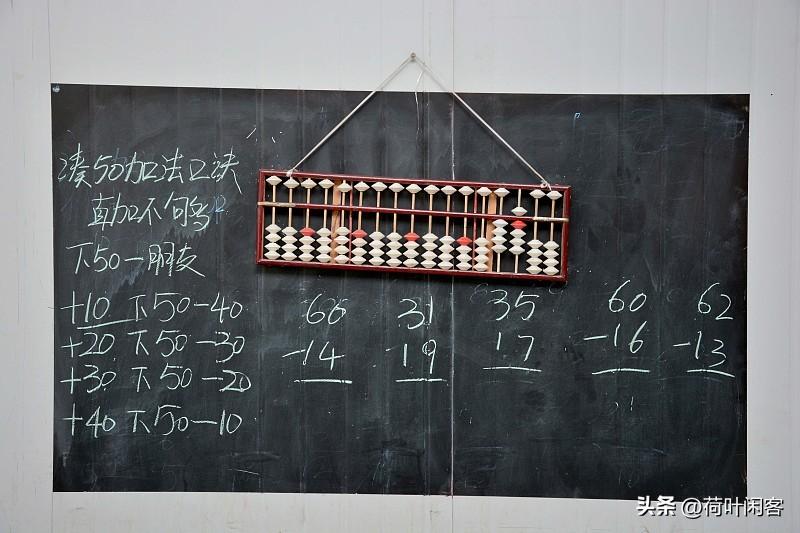 凑50加法口诀
直加不够
下50一朋友
+10 下50-40
+20 下50-30
+30 下50-20
+40 下50-10
66 31 35 60 62
-14 19 17 -16 -13
头条 @荷叶闲客